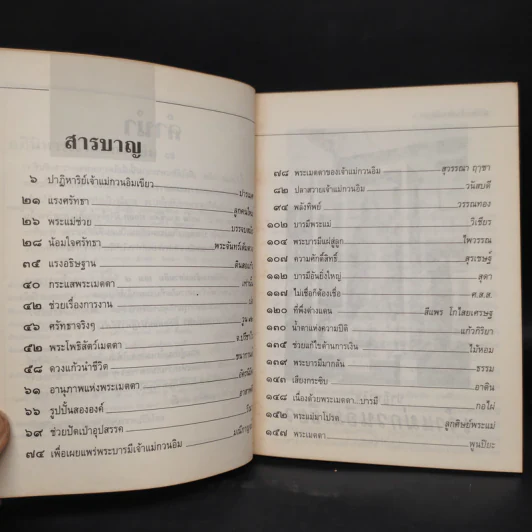 สารบาญ
๖ ปาฏิหาริย์เจ้าแม่กวนอิมเขียว
๒๑ แรงศรัทธา ลูกคนใหม่
๒๖ พระแม่ช่วย
๒๘ น้อมใจศรัทธา
๓๕ แรงอธิษฐาน
๔๐ กระแสพระเมตตา
๔๒ ช่วยเรื่องการงาน
๔๖ ศรัทธาจริงๆ
๕๒ พระโพธิสัตว์เมตตา
๕๘ ดวงแก้วนำชีวิต
๖๑ อานุภาพแห่งพระเมตตา
๖๖ รูปปั้นสององค์
๖๙ ช่วยปัดเป่าอุปสรรค
๗๔ เพื่อเผยแพร่พระบารมีเจ้าแม่กวนอิม
๗๘ พระเมตตาของเจ้าแม่กวนอิม สุวรรณา ฤาชา
๘๒ ปลาสวายเจ้าแม่กวนอิม วนัสบดี
๙๔ พลังทิพย์ วรรณทอง
๑๐๒ บารมีพระแม่ วิเชียร
๑๐๔ พระบารมีแผ่สู่ลูก ไพวรรณ
๑๐๗ ความศักดิ์สิทธิ์ สุรเชษฐ์
๑๑๒ บารมีอันยิ่งใหญ่ สุดา
๑๑๗ ไม่เชื่อก็ต้องเชื่อ ศ.ส.ส.
๑๒๐ ที่พึ่งต่างแดน สีแพร โกไสยเศรษฐ
๑๓๐ น้ำตาแห่งความปีติ แก้วกิริยา
๑๓๕ ช่วยแก้ไขด้านการเงิน ไม้หอม
๑๓๙ พระบารมีมากล้น ธรรม
๑๔๑ เสียงกระซิบ อาติน
๑๔๘ เนื่องด้วยพระเมตตา..บารมี กอไผ่
๑๕๒ พระแม่มาโปรด ลูกศิษย์พระแม่
๑๕๗ พระเมตตา พูนปิยะ